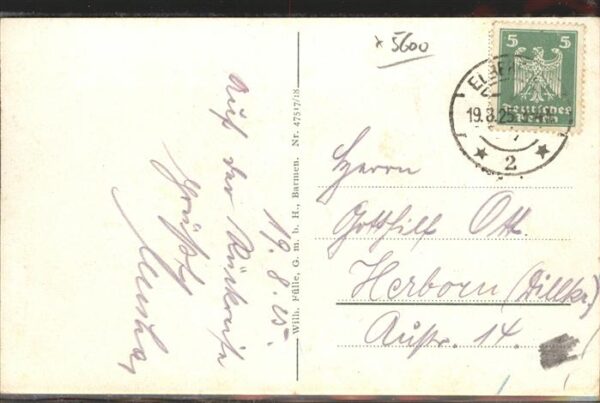 * 5600
5 5
Deutsches
Reich
ELBERF
19.8.25
* 2 *
19.8.25.
Auf der Rückreise
grüßt
Wilh. Fülle, G. m. b. H., Barmen. Nr. 47517/18.
Herrn
Gotthilf Ott.
Herborn (Dillkr.)
Austr. 14.